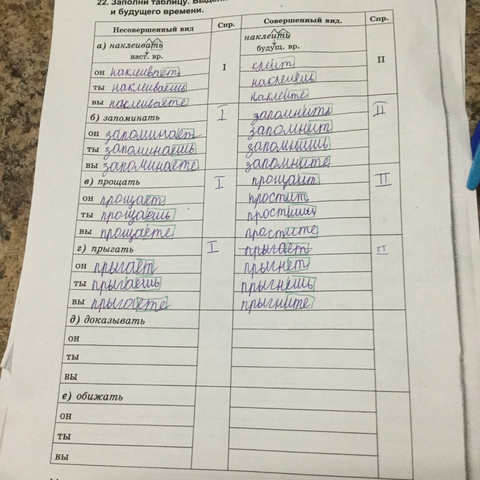 22. Заполни таблицу. Выдели
и будущего времени.
Несовершенный вид Спр. Совершенный вид. Спр.
а) наклеивать наклеить
наст. вр. I будущ. вр. II
он наклеивает клеит
ты наклеиваешь наклеишь
вы наклеиваете наклеите
б) запоминать I запомнить II
он запоминает запомнит
ты запоминаешь запомнишь
вы запоминаете запомните
в) прощать I II
он прощает простит
ты прощаешь простишь
вы прощаете простите
г) прыгать I II
он прыгает прыгнет
ты прыгаешь прыгнешь
вы прыгаете прыгните
д) доказывать
он
ты
вы
е) обижать
он
ты
вы